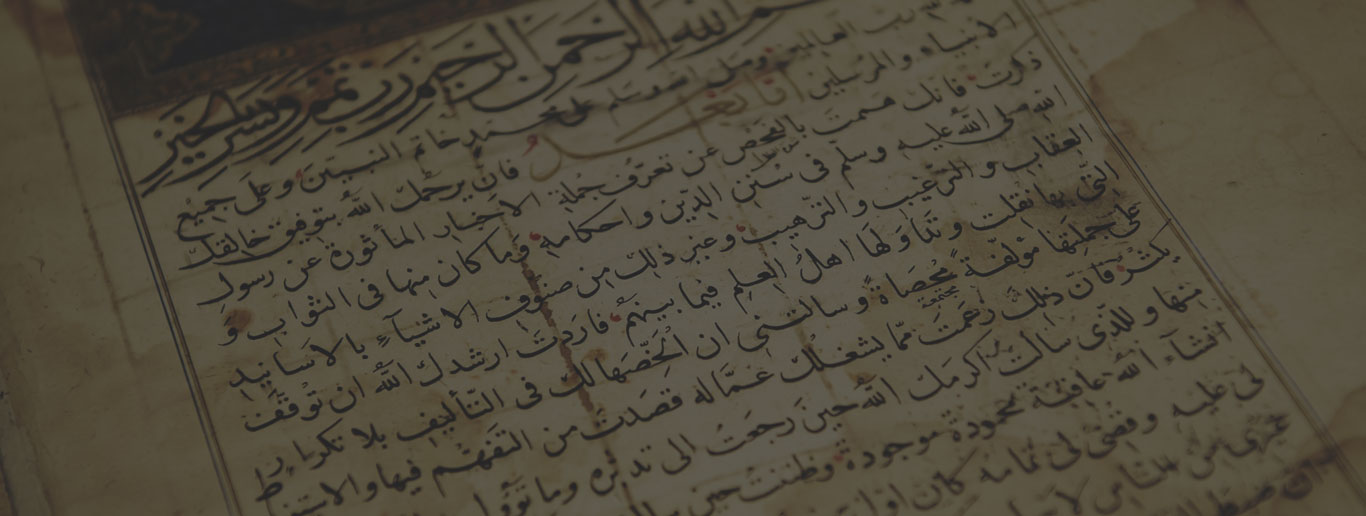 بسم الله الرحمن الرحيم رب تمم ويسر بالخير
رب العالمين وصلى الله وسلم على محمد خاتم النبيين وعلى جميع
الانبياء والمرسلين اما بعد فانك يرحمك الله بتوفيق خالقك
ذكرت فانك هممت بالفحص عن تعرف جملة الاخبار الماثورة عن رسول
الله صلى الله عليه وسلم فى سنن الدين واحكامه وما كان منها فى الثواب و
العقاب والترغيب والترهيب وغير ذلك من صنوف الاشياء بالاسانيد
التى بها نقلت وتداولها اهل العلم فيما بينهم فاردت ارشدك الله ان توقف
على جملتها مؤلفة محصاة وسالتنى ان الخصها لك فى التأليف بلا تكرار
يكثر فان ذلك زعمت مما يشغلك عما له قصدت من التفهم فيها والاستنـ
منها وللذى سالت اكرمك الله حين رجعت الى تدبره وما تؤو
انشاء الله عاقبة محمودة موجودة وظننت حين
لى عليه وقضى لى تمامه كان اول
غيرى من الناس